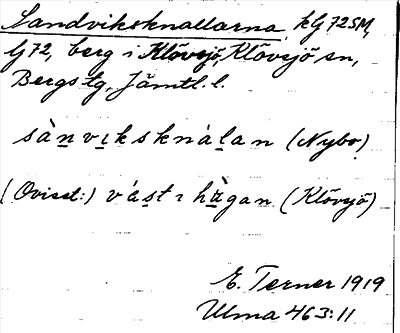 Sandviksknallarna, kG 72 SM,
G 72, berg i Klövsjö, Klövsjö sn,
Bergs tg, Jämtl. l.
sànviksknàlan (Nybo)
(Ovisst:) vást i hàgan (Klövsjö)
E. Terner 1919
Ulma 463:11